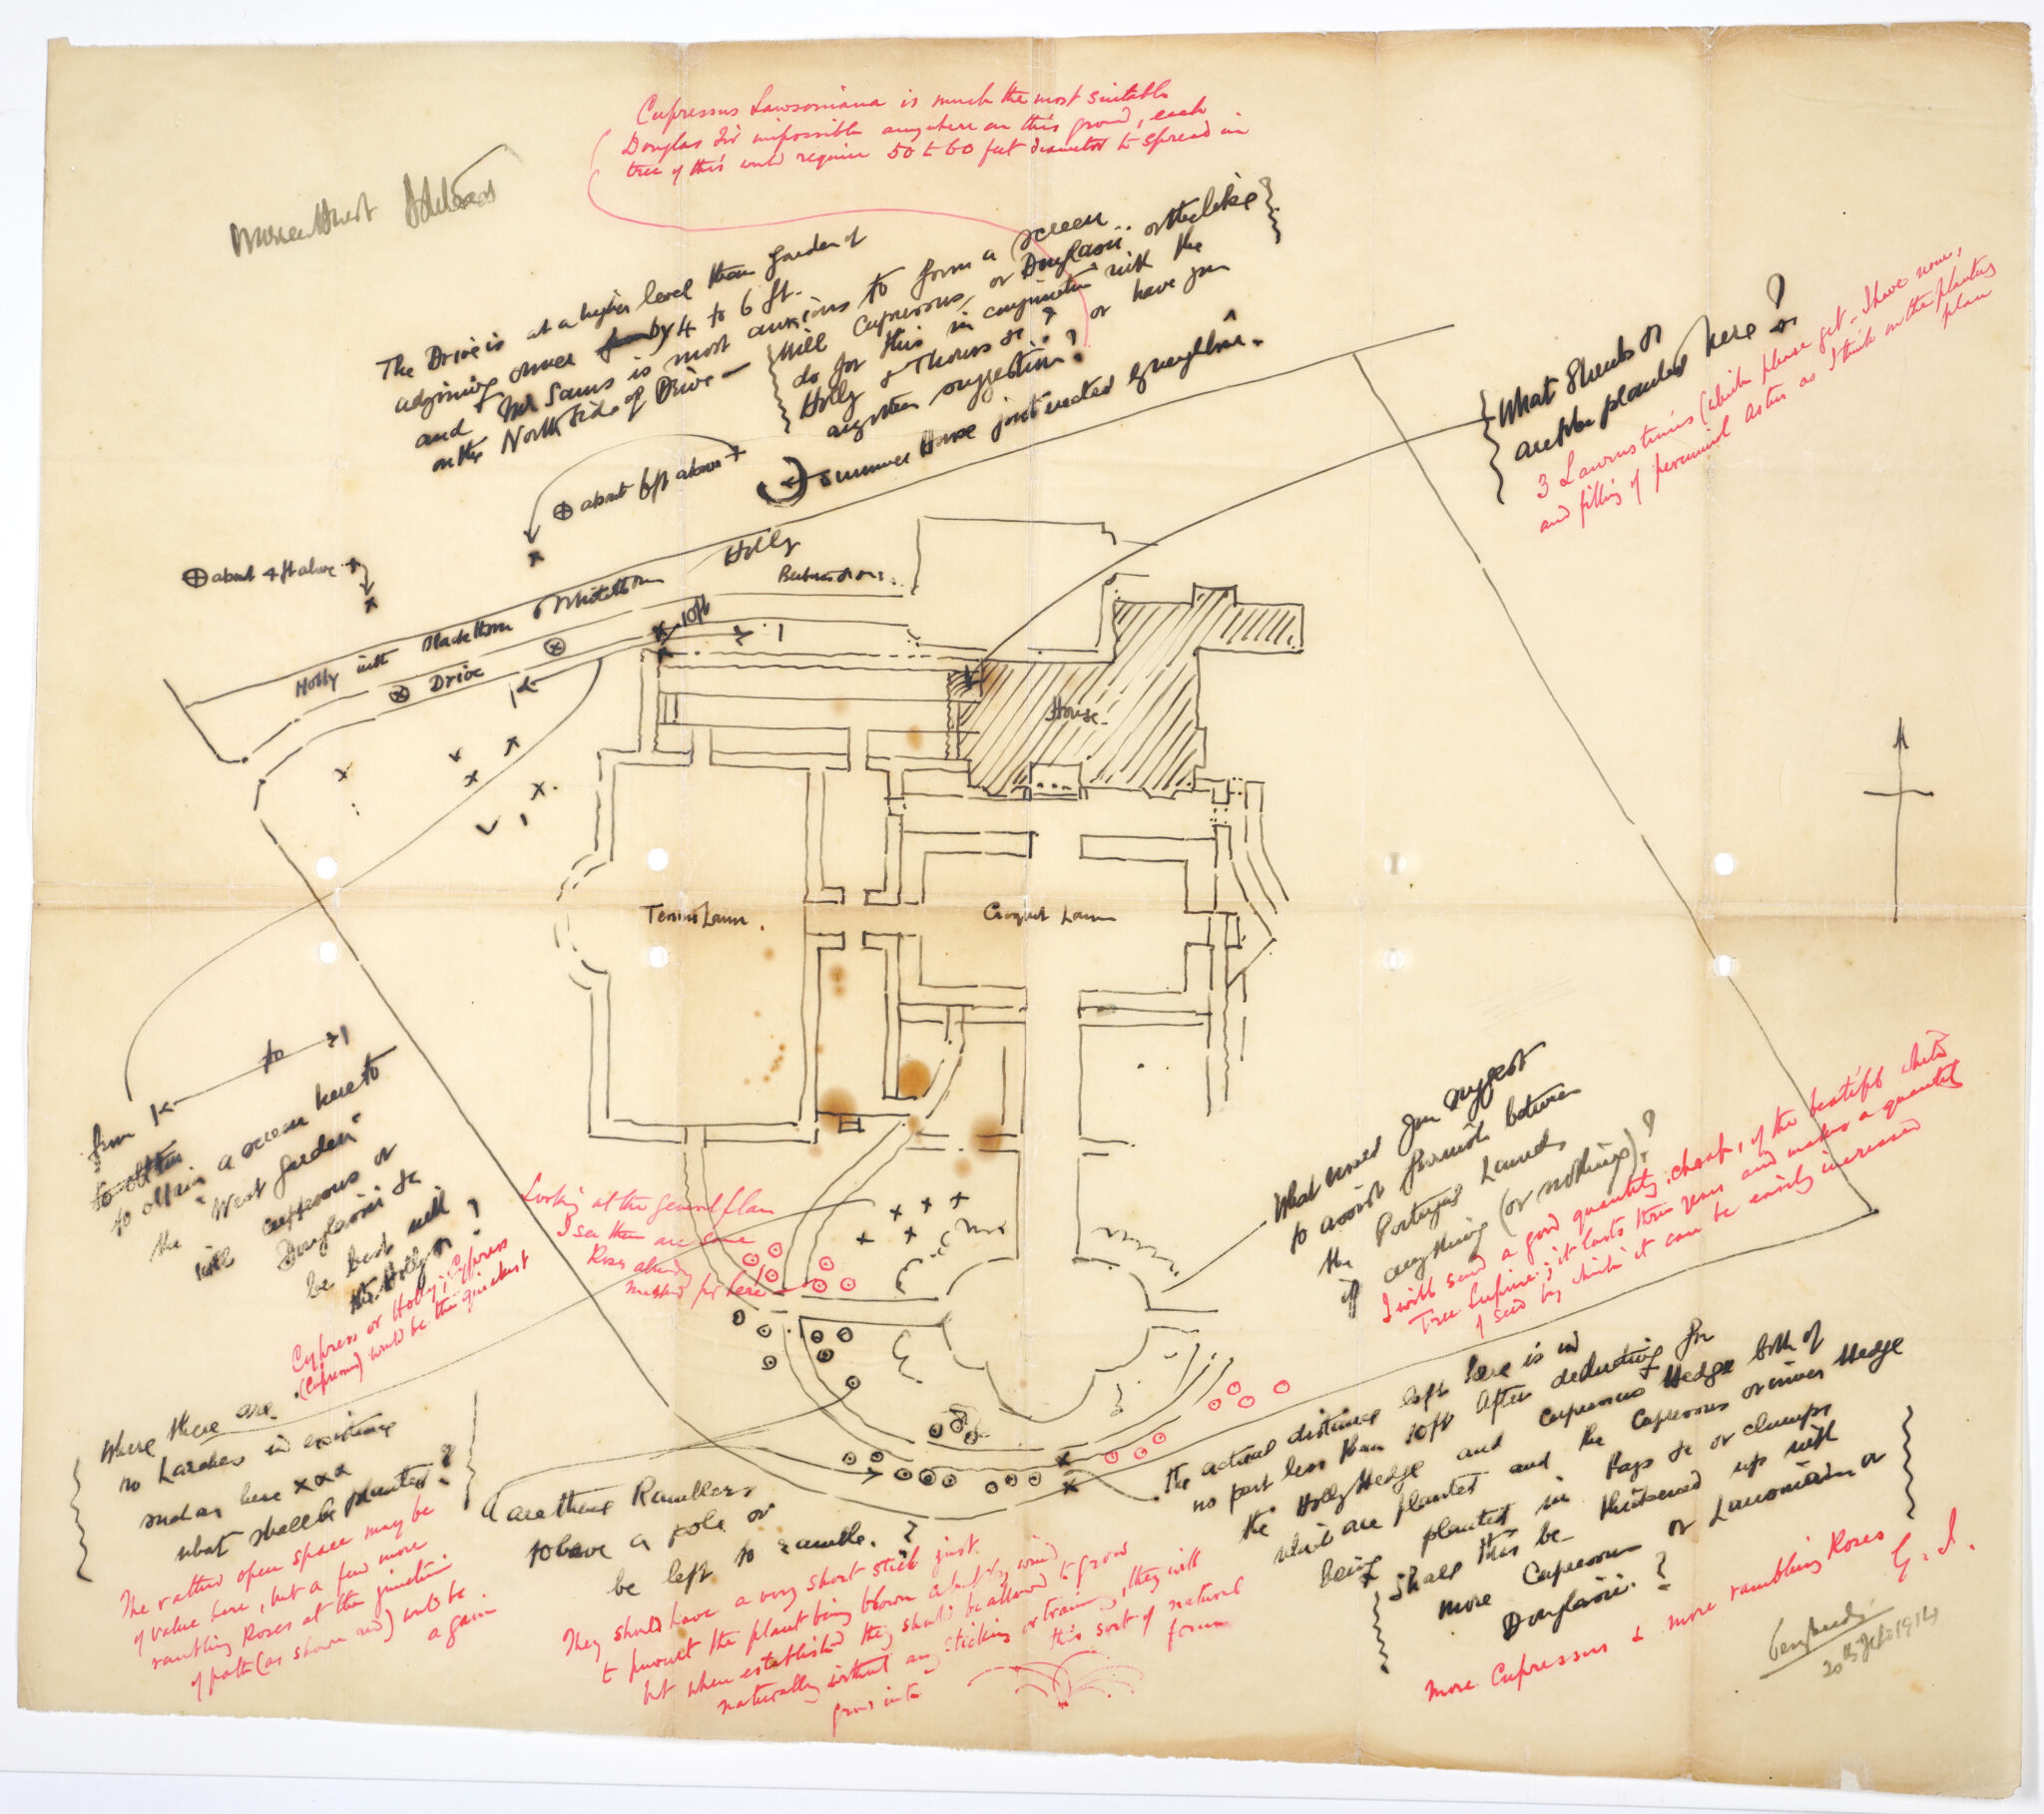 Cupressus Lawsoniana is much the most suitable
Douglas Fir impossible anywhere on this ground, each
tree of this would require 50 to 60 feet diameter to spread in
The Drive is at a higher level than garden of
adjoining owner by 4 to 6 ft.
and Mr Sams is most anxious to form a screen
on the North side of Drive —
Will Cupressus, or Douglasii.. or the like
do for this in conjunction with the
Holly & Thorns or ? or have you
any other suggestion?
Summer House just erected of my love.
about 6ft above
about 4 ft above
What Shrubs
are to be planted here?
3 Laurustinus (which please get - I have none,
and filling of perennial Aster as I think on the planting
plan
Holly
Holly with Blackthorn & Whitethorn
Drive
10ft
House.
Tennis Lawn.
Croquet Lawn
from
to
to obtain a screen here to
the "West garden"
will cupressus or
Douglasii &c
be best with
the Holly or ?
Cypress or Holly; Cypress
(Cupressus) would be the quickest
Looking at the general plan
I see there are some
Roses already
marked for here
What would you suggest
to assist furnish between
the Portugal Laurels
if anything (or nothing)?
I will send a good quantity, cheap, of the beautiful white
Tree Lupine; it lasts three years and makes a quantity
of seed by which it can be easily increased
Where there are
no Larches in existence
such as here xxx
what shall be planted?
The rather open space may be
of value here, but a few more
rambling Roses at the junction
of path (as shown red) would be
a gain.
are these Ramblers
to have a pole or
be left to ramble. ?
They should have a very short stick just
to prevent the plant being blown about by wind
but when established they should be allowed to grow
naturally without any sticking or training, they will
grow into this sort of natural
form
The actual distance left here is in
no part less than 10ft after deducting for
the Holly Hedge and Cupressus Hedge both of
which are planted and the Cupressus or inner Hedge
being planted in bays &c or clumps
Shall this be thickened up with
more Cupressus or Lawsoniana or
Douglasii. ?
More Cupressus & more rambling Roses
G. J.
20th Feb 1914